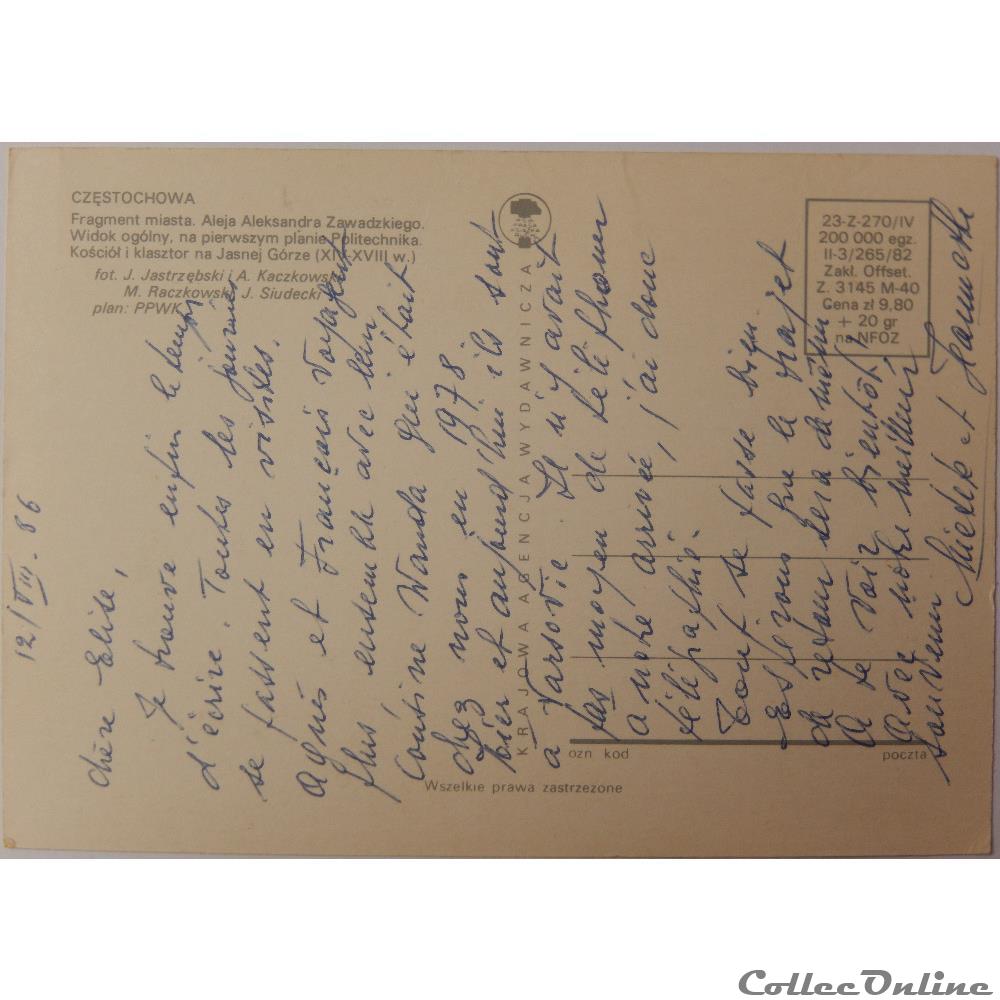 CZĘSTOCHOWA
Fragment miasta. Aleja Aleksandra Zawadzkiego.
Widok ogólny, na pierwszym planie Politechnika.
Kościół i klasztor na Jasnej Górze (XIV-XVIII w.)
fot. J. Jastrzębski i A. Kaczkowski
M. Raczkowski J. Siudecki
plan: PPWK
KRAJOWA AGENCJA WYDAWNICZA
23-Z-270/IV
200 000 egz.
II-3/265/82
Zakł. Offset.
Z. 3145 M-40
Cena zł 9,80
+ 20 gr
na NFOZ
ozn kod
poczta
Wszelkie prawa zastrzeżone
12/VIII. 86
chère Elise,
Je trouve enfin le temps
d'écrire. Toutes les journés
se passent en visites.
Agnès et François voyagent
plus ensemble avec leur
Cousine Wanda qui était
chez nous en 1978.
hier et aujourd'hui ils sont
a Varsovie. Il n'y avait
pas moyen de téléphoner
a notre arrivée, j'ai donc
télégraphié.
Tout se passe bien.
Espérons que le trajet
de retour sera de même
A te voir bientôt
Avec notre meilleur
souvenir
Mietek et
CollecOnline